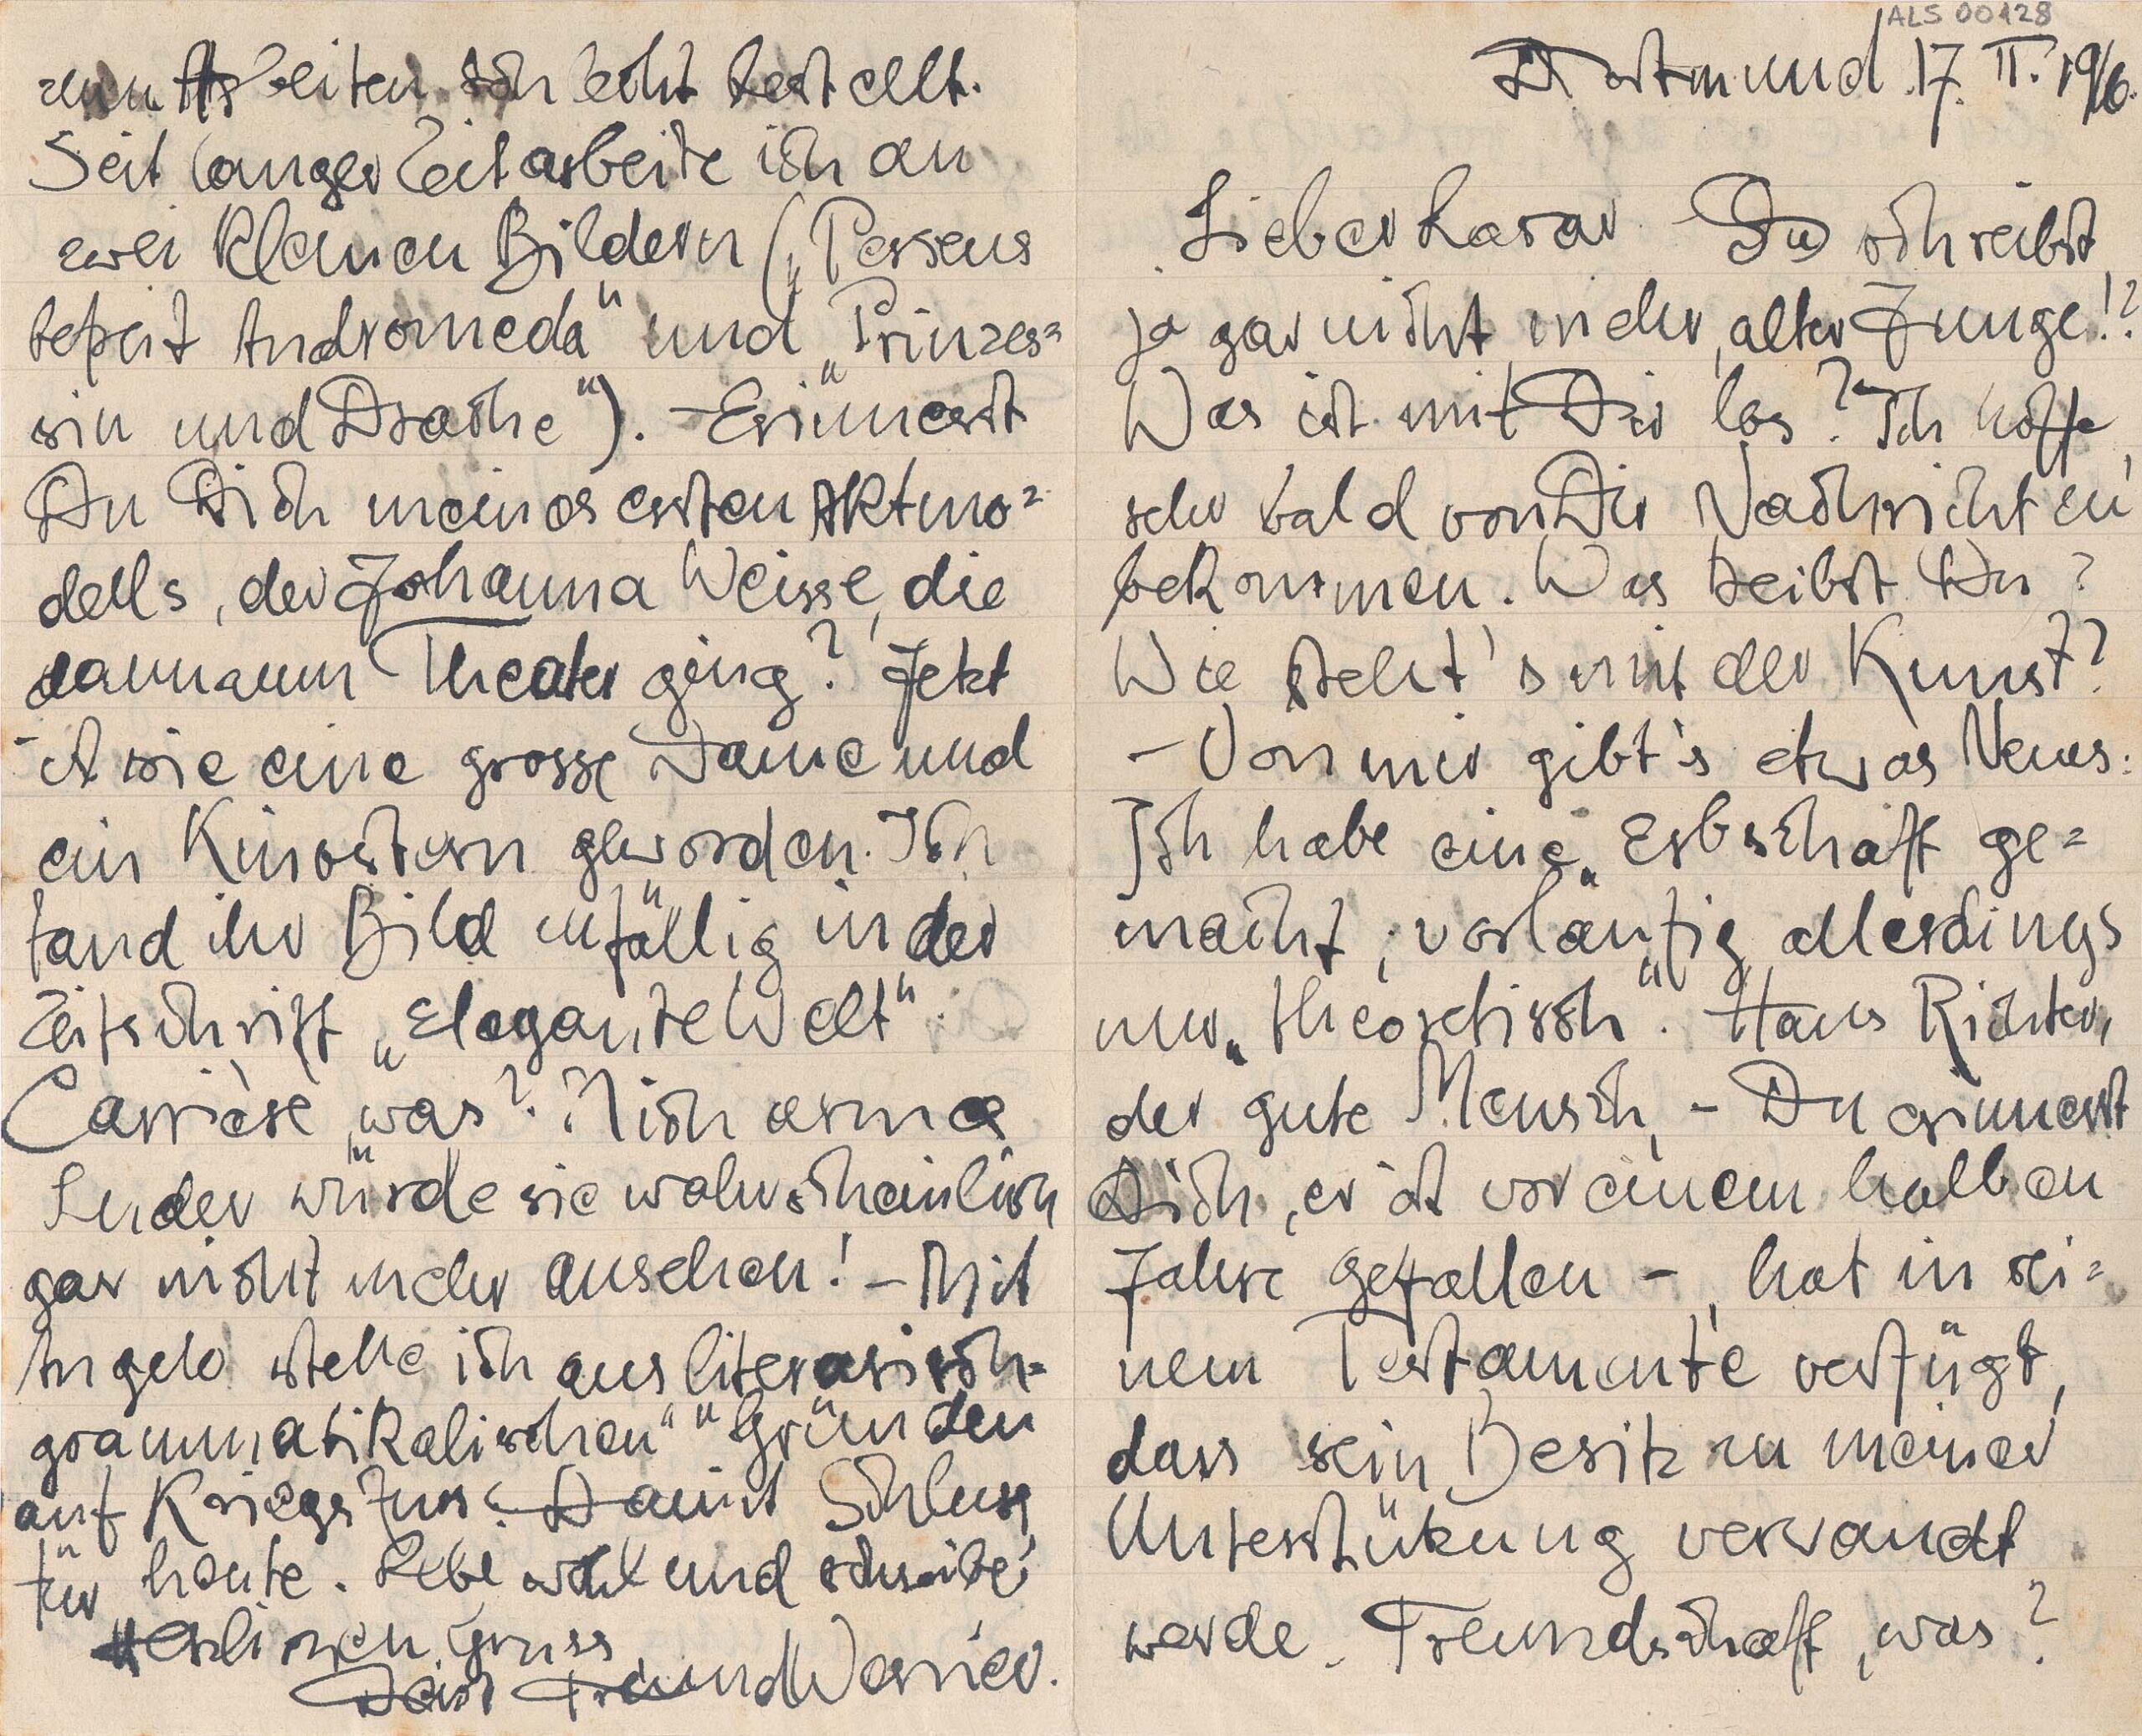 ALS 00128
Dortmund 17. II. 1916.
Lieber Lasar. Du schreibst
ja gar nicht mehr, alter Junge!?
Was ist mit Dir los? Ich hoffe,
sehr bald von Dir Nachrichten
bekommen. Was treibst Du?
Wie steht's mit der Kunst?
- Von mir gibt's etwas Neues:
Ich habe eine „Erbschaft ge=
macht, vorläufig allerdings
nur „theoretisch". Hans Richter,
der gute Mensch, - Du erinnerst
Dich, er ist vor einem halben
Jahre gefallen -, hat in sei=
nem Testamente verfügt,
dass sein Besitz zu meiner
Unterstützung verwandt
werde. Freundschaft, was?
zum Arbeiten schlecht bestellt.
Seit langer Zeit arbeite ich an
zwei kleinen Bildern („Perseus
befreit Andromeda" und „Prinzes=
sin und Drache"). - Erinnerst
Du Dich meines ersten Aktmo=
dells, der Johanna Weisse, die
dann zum Theater ging? Jetzt
ist sie eine grosse Dame und
ein Kinostern geworden. Ich
fand ihr Bild zufällig in der
Zeitschrift „Elegante Welt".
Carrière, was? Mich armes
Luder würde sie wahrscheinlich
gar nicht mehr ansehen! - Mit
Angelo stehe ich aus literarisch-
grammatikalischen" Gründen
auf Kriegsfuss. - Damit Schluss
für heute. Lebe wohl und schreibe!
Herzlichen Gruss
Dein Freund Werner.